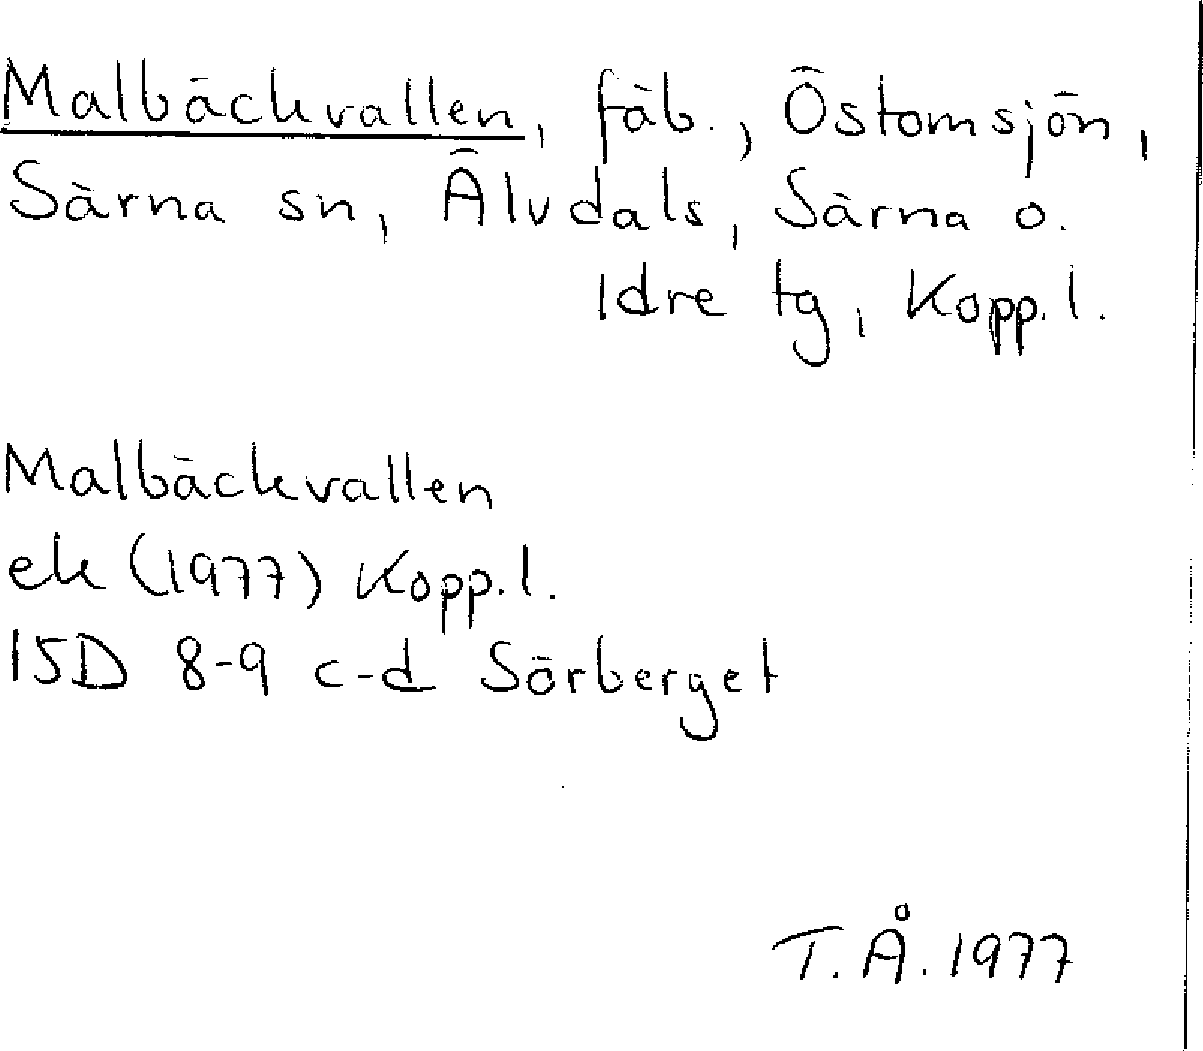 Malbäckvallen, fäb., Östomsjön,
Särna sn, Älvdals, Särna o.
Idre tg, Kopp. l.
Malbäckvallen
ek (1977) Kopp. l.
15D 8-9 c-d Sörberget
T. Å. 1977